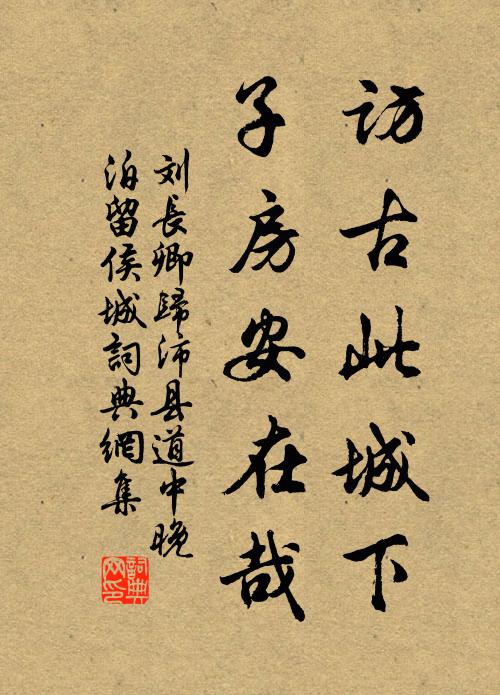 访古此城下
子房安在哉
刘長卿歸沛县道中晚
泊留侯城詞典網集
詞典
网印